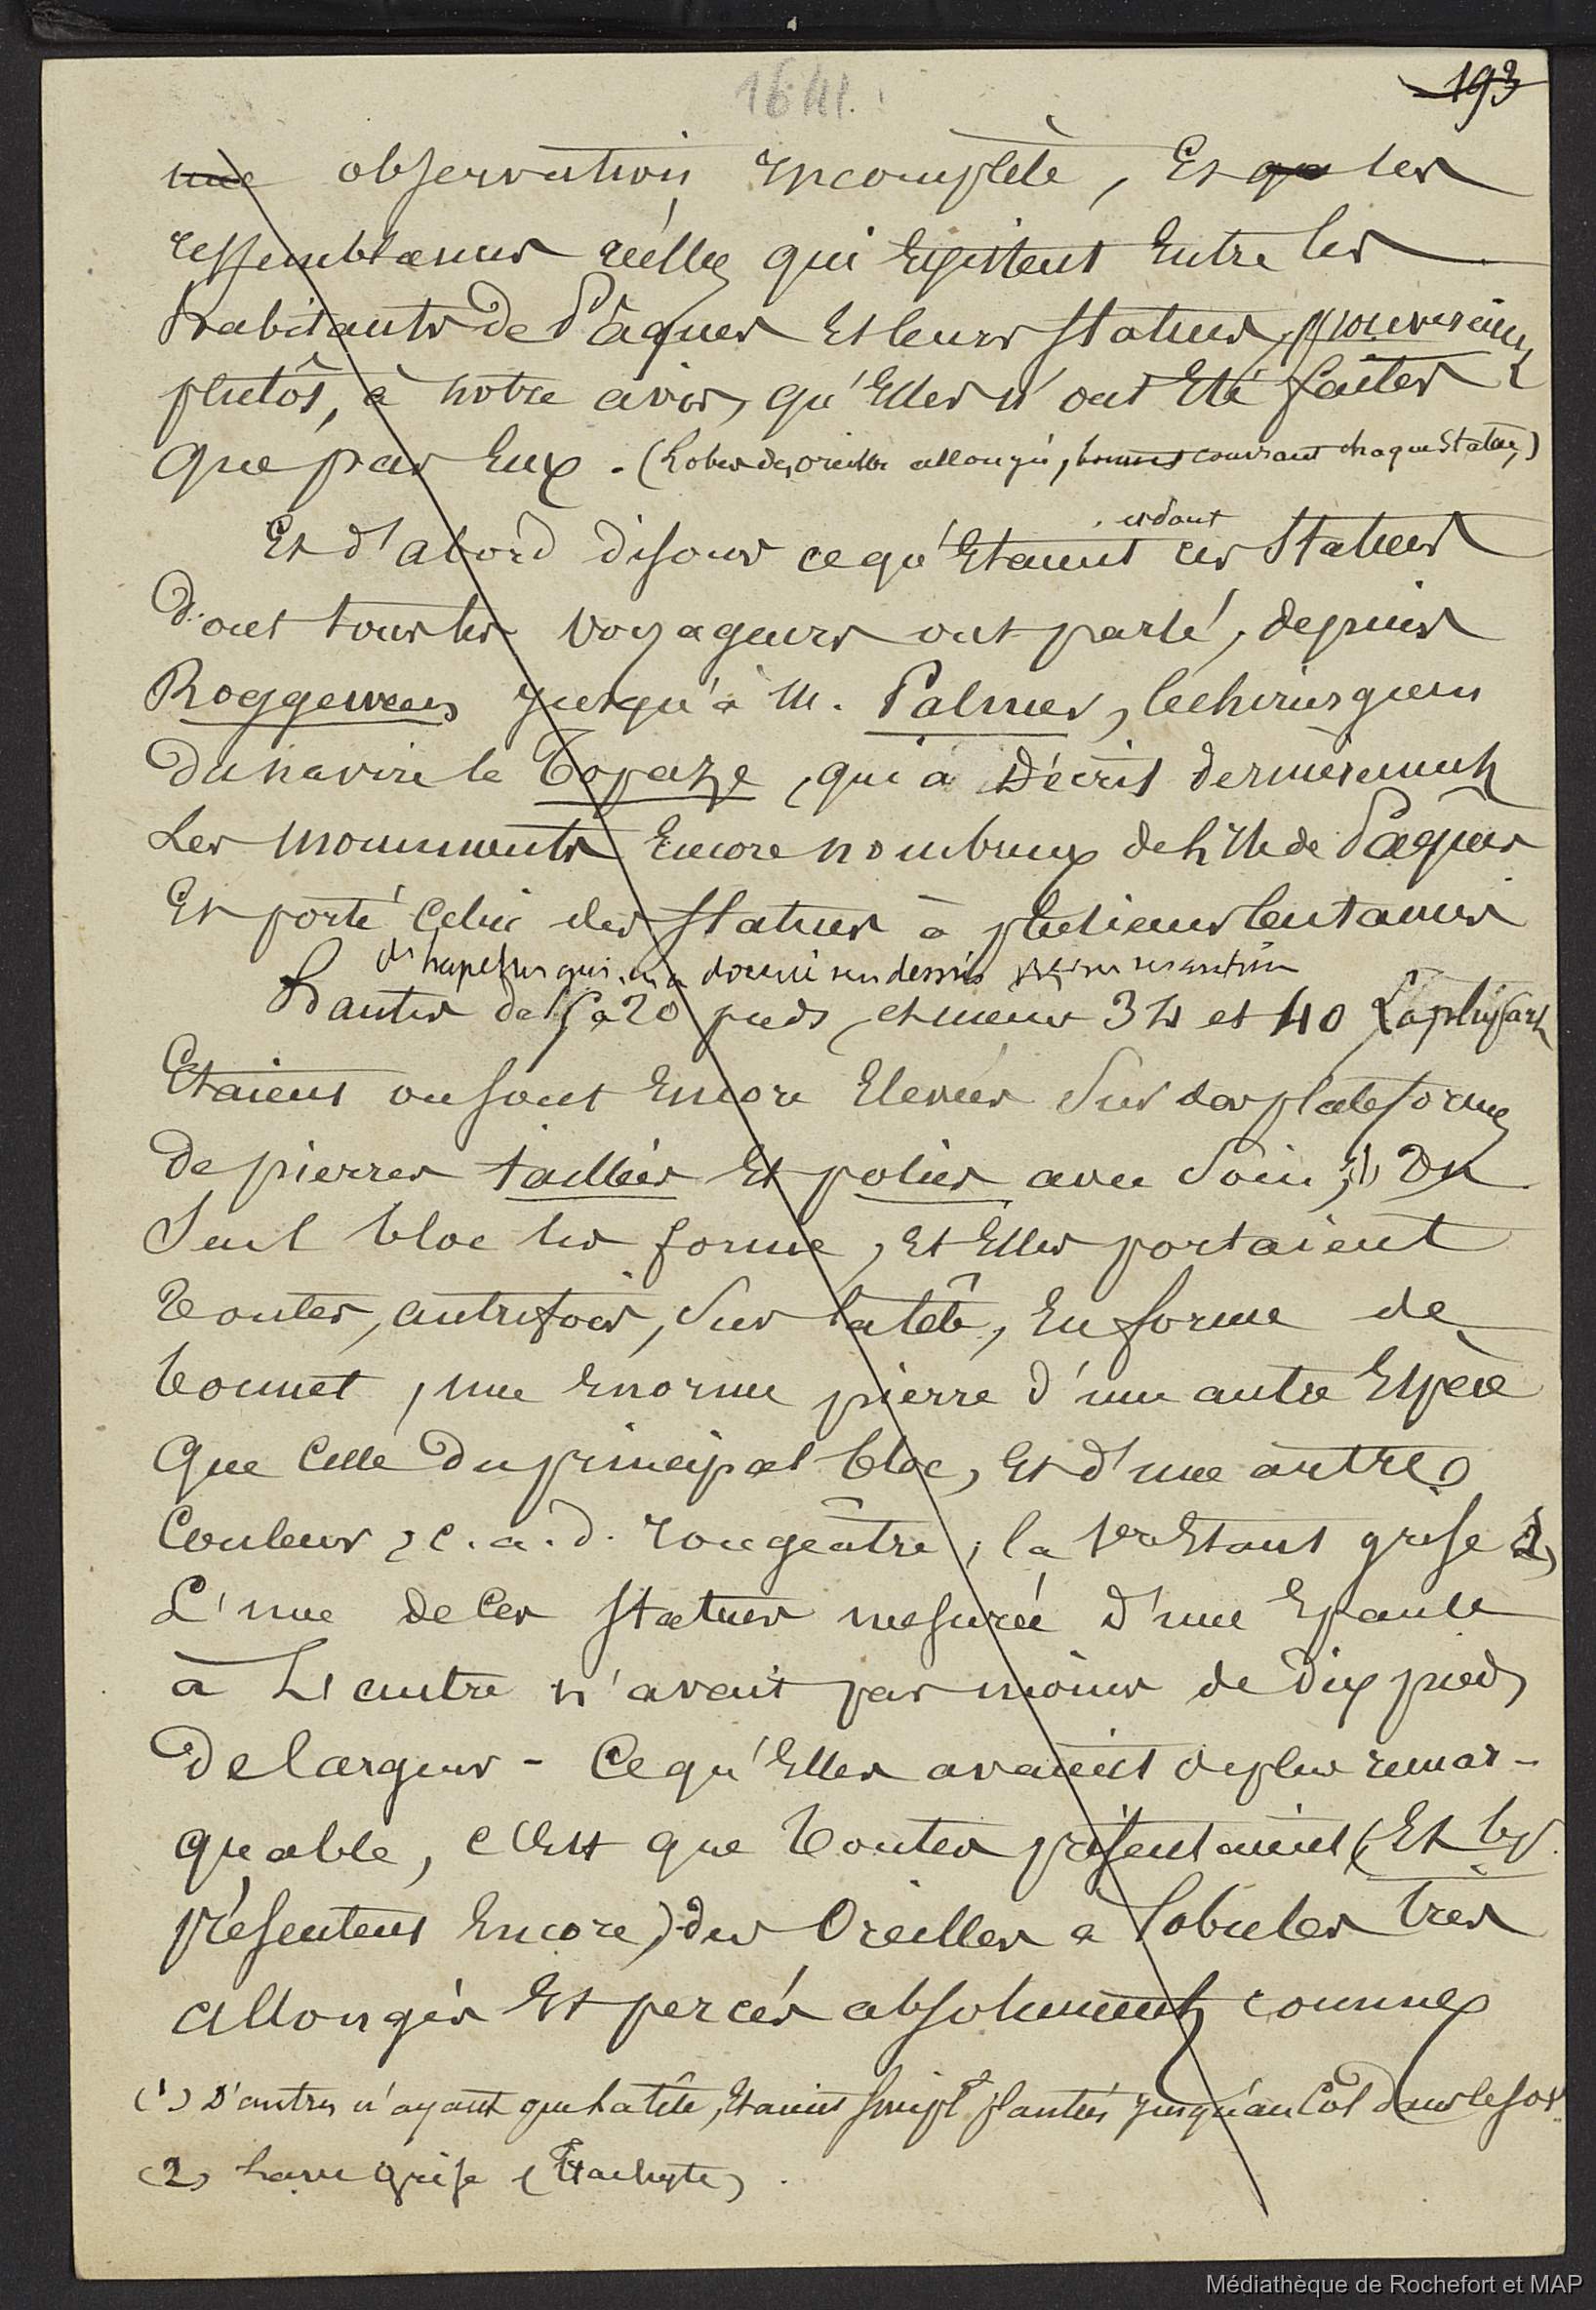 1641.
193
une observation incomplète, Et que les
ressemblances réelles qui Existent Entre les
habitants de Pâques Et leurs statues, prouveraient
plutôt, à notre avis, qu'Elles n'ont Eté faites
que par Eux. (Lobes des oreilles allongés, bonnets couvrant chaque statue)
Et d'abord disons ce qu'Etaient ces Statues
et dont
Dont tous les voyageurs ont parlé, depuis
Roggeween jusqu'à M. Palmer, le chirurgien
du navire la Topaze, qui a Décrit dernièrement
Les monuments Encore nombreux de l'Ile de Pâques
Et porté celui des statues à plusieurs Centaines
qui en a donné un dessin
Hautes de 15 à 20 pieds, et même 34 et 40 La plupart
Etaient ou sont Encore Elevées Sur des plateformes
de pierres taillées Et polies avec Soin, (1) Un
Seul bloc les forme, Et Elles portaient
Toutes, autrefois, Sur la tête, En forme de
bonnet, une Enorme pierre d'une autre Espèce
que Celle Du principal bloc, Et d'une autre
Couleur, c.a.d. rougeâtre, la 1re Etant grise (2)
L'une de Ces statues mesurée d'une Epaule
à L'autre n'avait pas moins de Dix pieds
De largeur - Ce qu'Elles avaient de plus remar-
quable, c'Est que Toutes présentaient (Et les
présentent Encore) des Oreilles a lobules très
allongés Et percés absolument comme
(1) D'autres n'ayant que la tête, Etaient simplt plantées jusqu'au Col Dans le sol.
(2) Lave grise (Trachyte).
Médiathèque de Rochefort et MAP